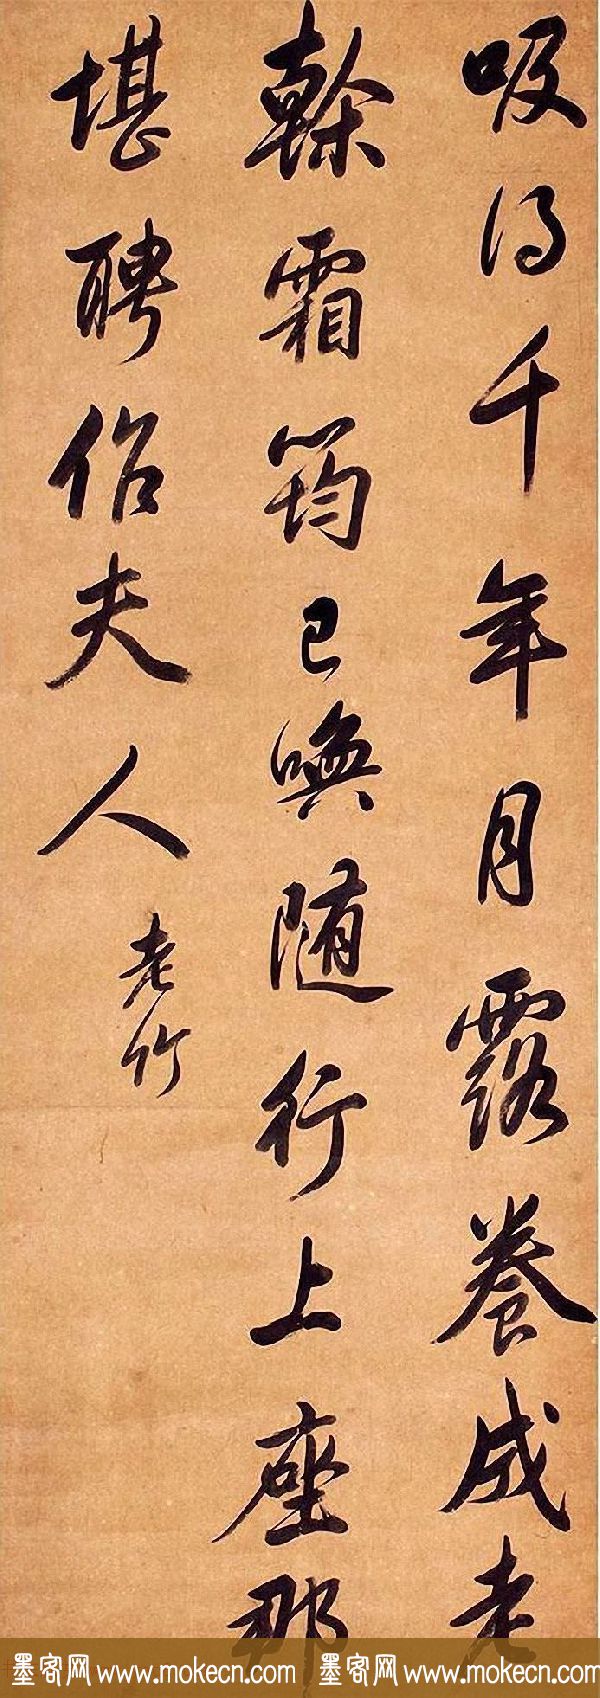 吸得千年月露養成老
榦霜筠已喚随行上座那
堪聘作夫人
老竹
墨客网 www.mokecn.com 墨客网 www.mokecn.com